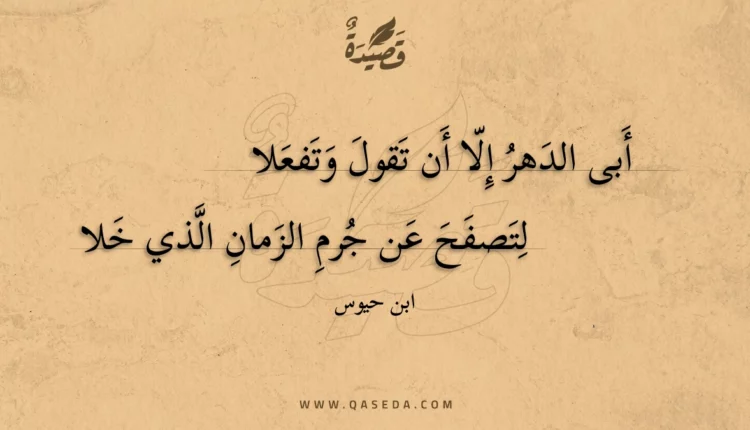 قَصِيْدَةٌ
أَبى الدَهرُ إِلّا أَن تَقولَ وَتَفعَلا
لِتَصفَحَ عَن جُرمِ الزَمانِ الَّذي خَلا
ابن حيوس
WWW.QASEDA.COM